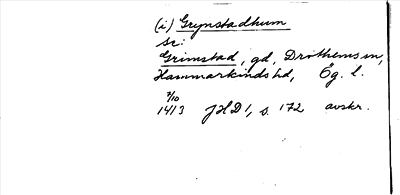 (i) Grynstadhum
sr:
Grimstad, gd, Drothems sn,
Hammarkinds hd, Ög. l.
7/10
1413 JHD 1, s. 172 avskr.